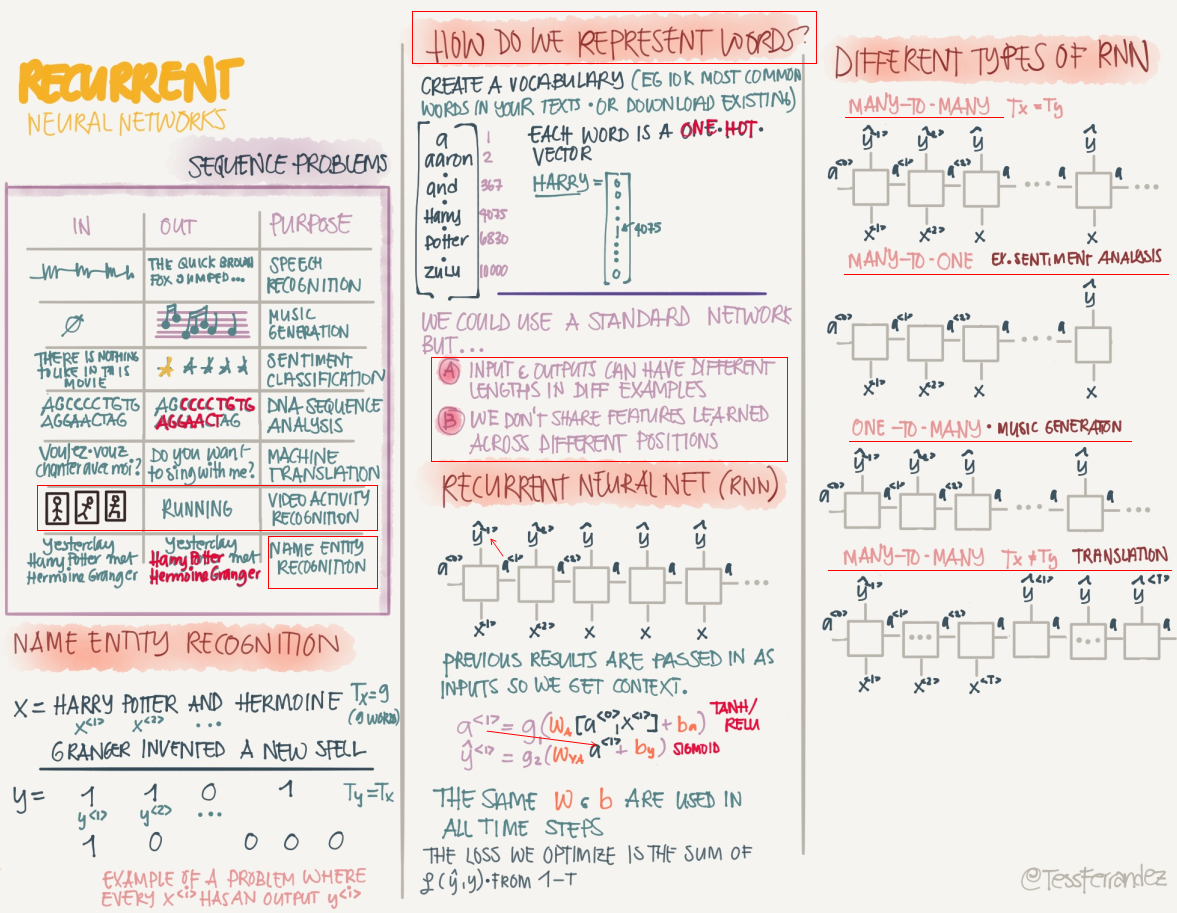 RECURRENT
NEURAL NETWORKS
SEQUENCE PROBLEMS
IN OUT PURPOSE
THE QUICK BROWN
FOX JUMPED...
SPEECH
RECOGNITION
MUSIC
GENERATION
THERE IS NOTHING
TO LIKE IN THIS
MOVIE
SENTIMENT
CLASSIFICATION
AGCCCCTGTG
AGGAACTAG
AGCCCCTGTG
AGGAACTAG
DNA SEQUENCE
ANALYSIS
Voulez-vouz
chanter avec moi?
Do you want
to sing with me?
MACHINE
TRANSLATION
RUNNING
VIDEO ACTIVITY
RECOGNITION
Yesterday
Harry Potter met
Hermoine Granger
Yesterday
Harry Potter met
Hermoine Granger
NAME ENTITY
RECOGNITION
NAME ENTITY RECOGNITION
X = HARRY POTTER AND HERMOINE Tx=9
x<1> x<2> ... (9 WORDS)
GRANGER INVENTED A NEW SPELL
y = 1 1 0 1 Ty=Tx
y<1> y<2> ...
1 0 0 0 0
EXAMPLE OF A PROBLEM WHERE
EVERY X<i> HAS AN OUTPUT y<i>
HOW DO WE REPRESENT WORDS?
CREATE A VOCABULARY (EG 10K MOST COMMON
WORDS IN YOUR TEXTS • OR DOWNLOAD EXISTING)
a 1
aaron 2
and 367
Harry 4075
Potter 6830
zulu 10000
EACH WORD IS A ONE•HOT•
VECTOR
HARRY =
0
0
1 4075
0
WE COULD USE A STANDARD NETWORK
BUT...
A INPUT & OUTPUTS CAN HAVE DIFFERENT
LENGTHS IN DIFF EXAMPLES
B WE DON'T SHARE FEATURES LEARNED
ACROSS DIFFERENT POSITIONS
RECURRENT NEURAL NET (RNN)
ŷ<1> ŷ<2> ŷ ŷ ŷ
a<0> a<1> a a a ...
x<1> x<2> x x x
PREVIOUS RESULTS ARE PASSED IN AS
INPUTS SO WE GET CONTEXT.
a<1> = g₁(WA[a<0>,x<1>] + ba) TANH/
RELU
ŷ<1> = g₂(WYA a<1> + by) SIGMOID
THE SAME W & b ARE USED IN
ALL TIME STEPS
THE LOSS WE OPTIMIZE IS THE SUM OF
ℒ(ŷ,y)•FROM 1-T
DIFFERENT TYPES OF RNN
MANY-TO-MANY Tx = Ty
ŷ<1> ŷ<2> ŷ ŷ
a<0> a<1> a<2> a ... a ...
x<1> x<2> x x
MANY-TO-ONE EX. SENTIMENT ANALYSIS
ŷ
a<0> a<1> a<2> a ... a
x<1> x<2> x x
ONE-TO-MANY • MUSIC GENERATON
ŷ<1> ŷ<2> ŷ ŷ
a<0> a<1> a<2> a ... a ...
x<1>
MANY-TO-MANY Tx ≠ Ty TRANSLATION
ŷ<1> ŷ ŷ<T>
a<0> a<1> ... a<2> a a ... a
x<1> x<2> x<T>
@TessFerrandez